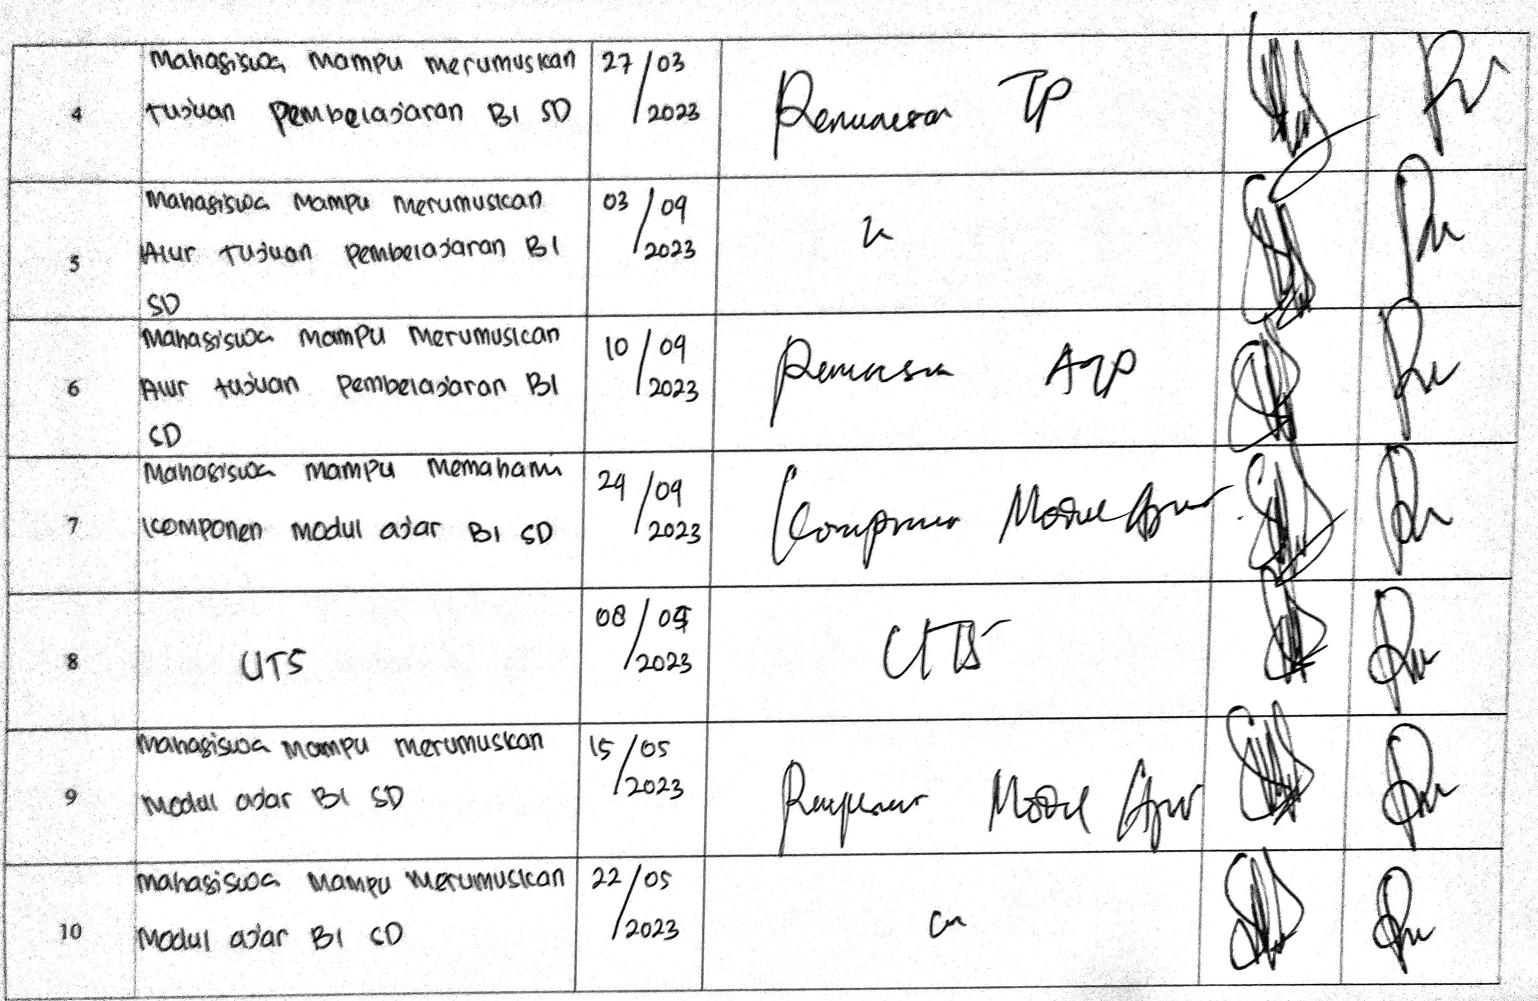 4
Mahasiswa Mampu merumuskan
tujuan Pembelajaran BI SD
27/03
2023
TP
5
Mahasiswa Mampu Merumuskan
Alur tujuan Pembelajaran BI
SD
03/04
2023
6
Mahasiswa Mampu Merumuskan
Alur tujuan Pembelajaran BI
SD
10/04
2023
ATP
7
Mahasiswa Mampu Memahami
Komponen Modul ajar BI SD
24/04
2023
Komponen Modul Ajar
8
UTS
08/05
2023
UTS
9
Mahasiswa Mampu merumuskan
Modul ajar BI SD
15/05
2023
Modul Ajar
10
Mahasiswa Mampu Merumuskan
Modul ajar BI SD
22/05
2023